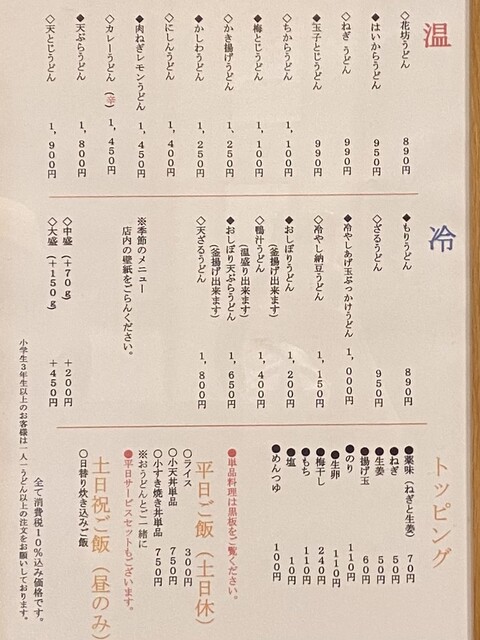 温
◇花坊うどん 890円
◆はいからうどん 950円
◇ねぎ うどん 990円
◆玉子とじうどん 990円
◇ちからうどん 1,100円
◆梅とじうどん 1,100円
◇かき揚げうどん 1,250円
◆かしわうどん 1,250円
◇にしんうどん 1,400円
◆肉ねぎレモンうどん 1,450円
◇カレーうどん（辛） 1,450円
◆天ぷらうどん 1,800円
◇天とじうどん 1,900円
冷
◆もりうどん 890円
◇ざるうどん 950円
◆冷やしあげ玉ぶっかけうどん 1,000円
◇冷やし納豆うどん 1,150円
◆おしぼりうどん 1,200円
（釜揚げ出来ます）
◇鴨汁うどん 1,400円
（温盛り出来ます）
◆おしぼり天ぷらうどん 1,650円
（釜揚げ出来ます）
◇天ざるうどん 1,800円
※季節のメニュー
店内の壁紙をごらんください。
◇中盛（+70g） +200円
◇大盛（+150g） +450円
トッピング
●薬味（ねぎと生姜） 70円
●ねぎ 50円
●生姜 50円
●揚げ玉 60円
●のり 110円
●生卵 110円
●梅干し 240円
●もち 110円
●塩 10円
●めんつゆ 100円
●単品料理は黒板をご覧ください。
平日ご飯（土日休）
○ライス 300円
○小天丼単品 750円
○小すき焼き丼単品 750円
※おうどんとご一緒に
●平日サービスセットもございます。
土日祝ご飯（昼のみ）
○日替り炊き込みご飯
全て消費税10%込み価格です。
小学生3年生以上のお客様は一人一うどん以上の注文をお願しております。